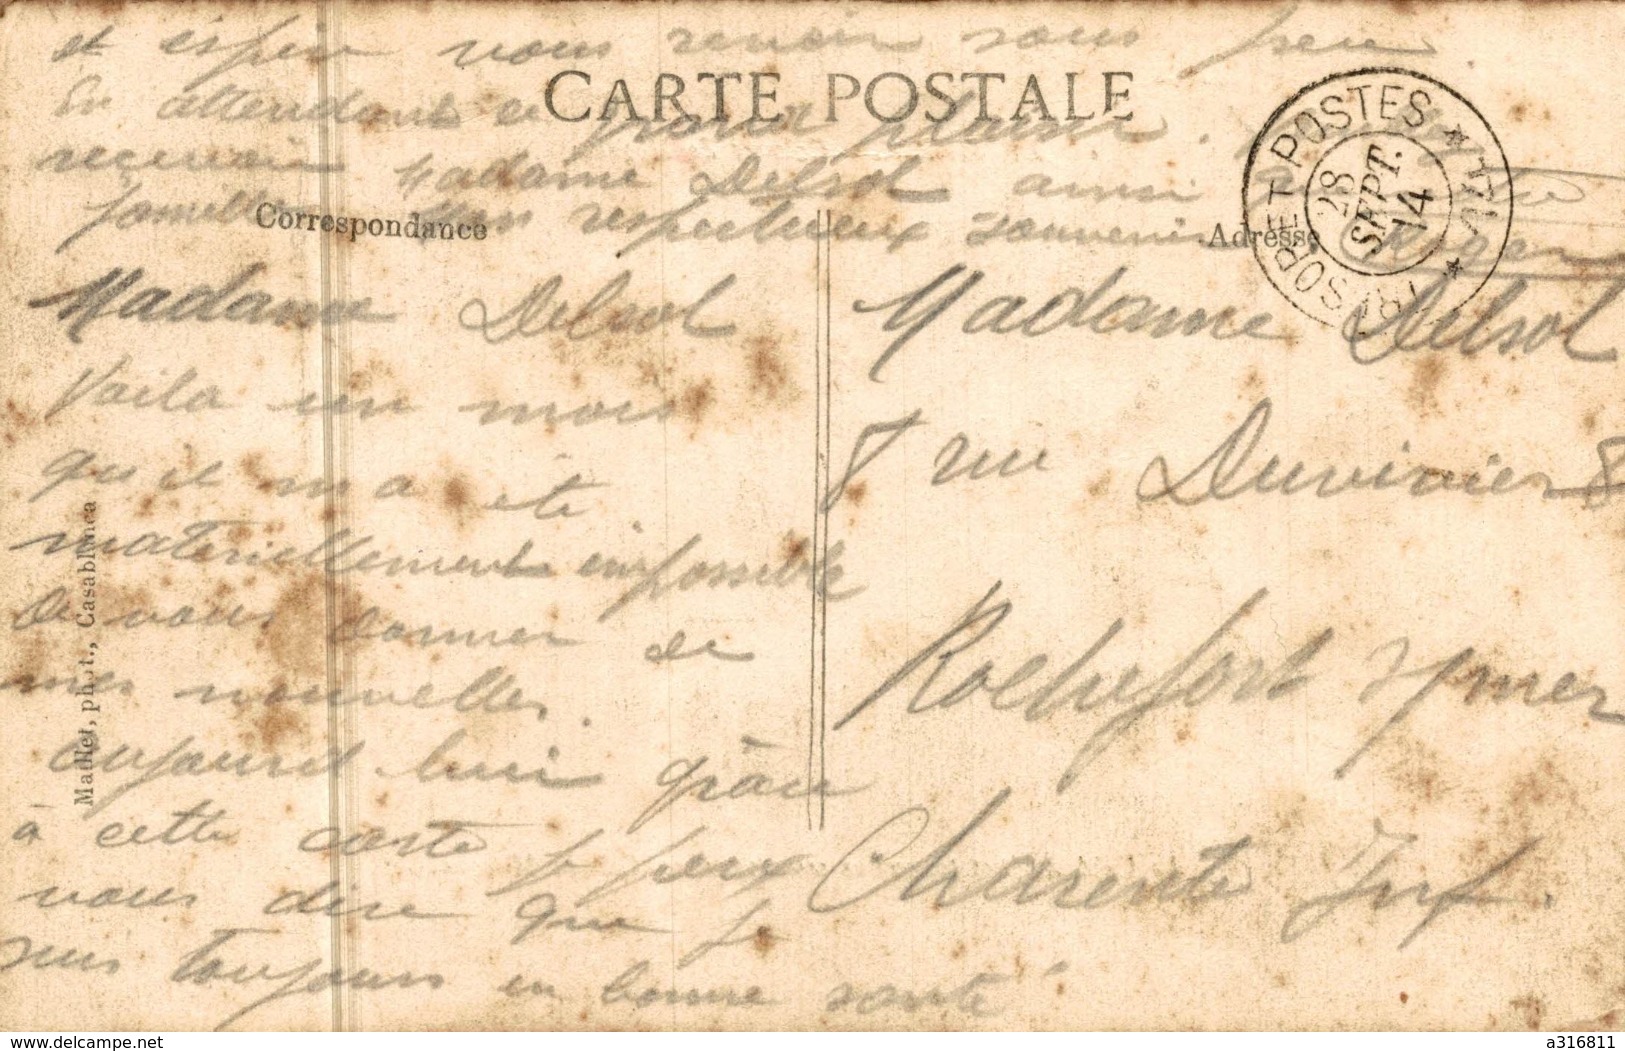 CARTE POSTALE
Correspondance
Adresse
Madame Delsol
Voila un mois
qu il m a ete
materiellement impossible
de vous donner de
mes nouvelles.
aujourd hui grâce
à cette carte je peux
vous dire que je
suis toujours en bonne santé
et espere vous revoir sous peu
En attendant ce grand plaisir.
recevoir Madame Delsol ainsi
famille mes respectueux souvenirs
Madame Delsol
8 rue Duvivier 8
Rochefort s/mer
Charente Inf.
TRESOR ET POSTES * 174 *
28
SEPT.
14
Maillet, phot., Casablanca
delcampe.net
a316811